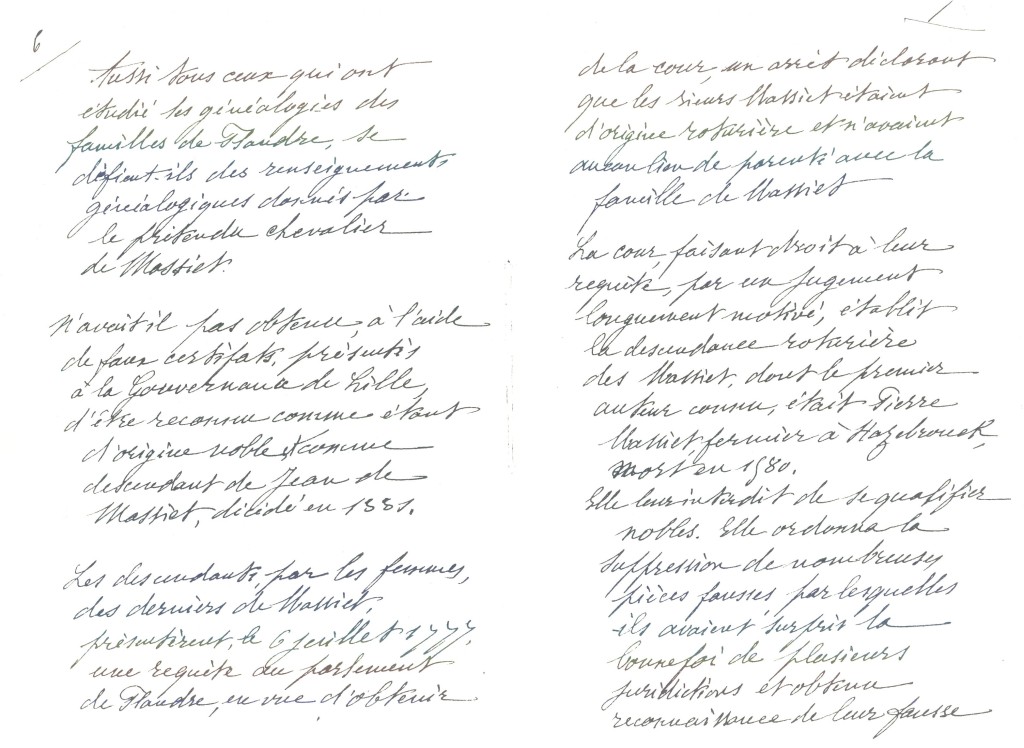 6
Aussi tous ceux qui ont
étudié les généalogies des
familles de Flandre, se
défient-ils des renseignements
généalogiques donnés par
le prétendu chevalier
de Massiet.
N'avait il pas obtenu, à l'aide
de faux certifats, présentés
à la Gouvernance de Lille,
d'être reconnu comme étant
d'origine noble et comme
descendant de Jean de
Massiet, décédé en
Les descendants, par les femmes,
des derniers de Massiet,
présentèrent, le 6 juillet 1777,
une requête au parlement
de Flandre, en vue d'obtenir
de la cour, un arrêt déclarant
que les sieurs Massiet étaient
d'origine roturière et n'avaient
aucun lien de parenté avec la
famille de Massiet
La cour, faisant droit à leur
requête, par un jugement
longuement motivé, établit
la descendance roturière
des Massiet, dont le premier
auteur connu, était Pierre
Massiet, fermier à Hazebrouck,
mort en 1580.
Elle leur interdit de se qualifier
nobles. Elle ordonna la
suppression de nombreuses
pièces fausses, par lesquelles
ils avaient surpris la
bonne foi de plusieurs
juridictions et obtenu
reconnaissance de leur fausse